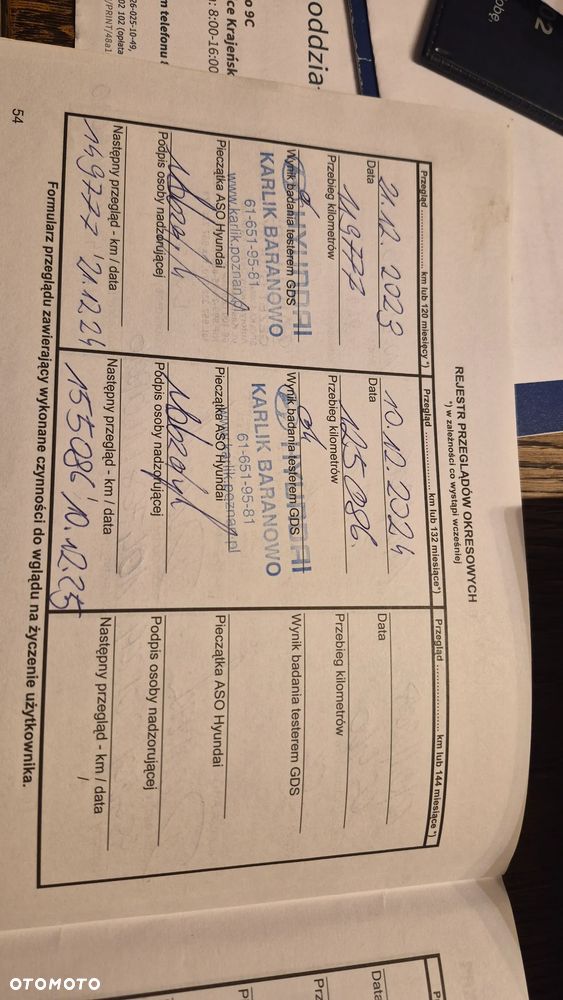 o 9C
ce Krajeńsk
: 8:00-16:00
m telefonu
oddział
6-025-10-49,
02 102 (opłata
/PRINT/48a1
02
obę,
REJESTR PRZEGLĄDÓW OKRESOWYCH
*) w zależności co wystąpi wcześniej
Przegląd .................. km lub 120 miesięcy *)
Data
21.12. 2023
Przebieg kilometrów
119777
Wynik badania testerem GDS
ok
HYUNDAI
KARLIK BARANOWO
61-651-95-81
www.karlik.poznan.pl
Pieczątka ASO Hyundai
Podpis osoby nadzorującej
Następny przegląd - km / data
149777 / 21.12.24
Przegląd .................. km lub 132 miesiące*)
Data
10.12.2024
Przebieg kilometrów
125086.
Wynik badania testerem GDS
ok
HYUNDAI
KARLIK BARANOWO
61-651-95-81
www.karlik.poznan.pl
Pieczątka ASO Hyundai
Podpis osoby nadzorującej
Następny przegląd - km / data
155086 / 10.12.25
Przegląd .................. km lub 144 miesiące *)
Data
Przebieg kilometrów
Wynik badania testerem GDS
Pieczątka ASO Hyundai
Podpis osoby nadzorującej
Następny przegląd - km / data
/
Formularz przeglądu zawierający wykonane czynności do wglądu na życzenie użytkownika.
54
P
Data
Prz
P
OTOMOTO